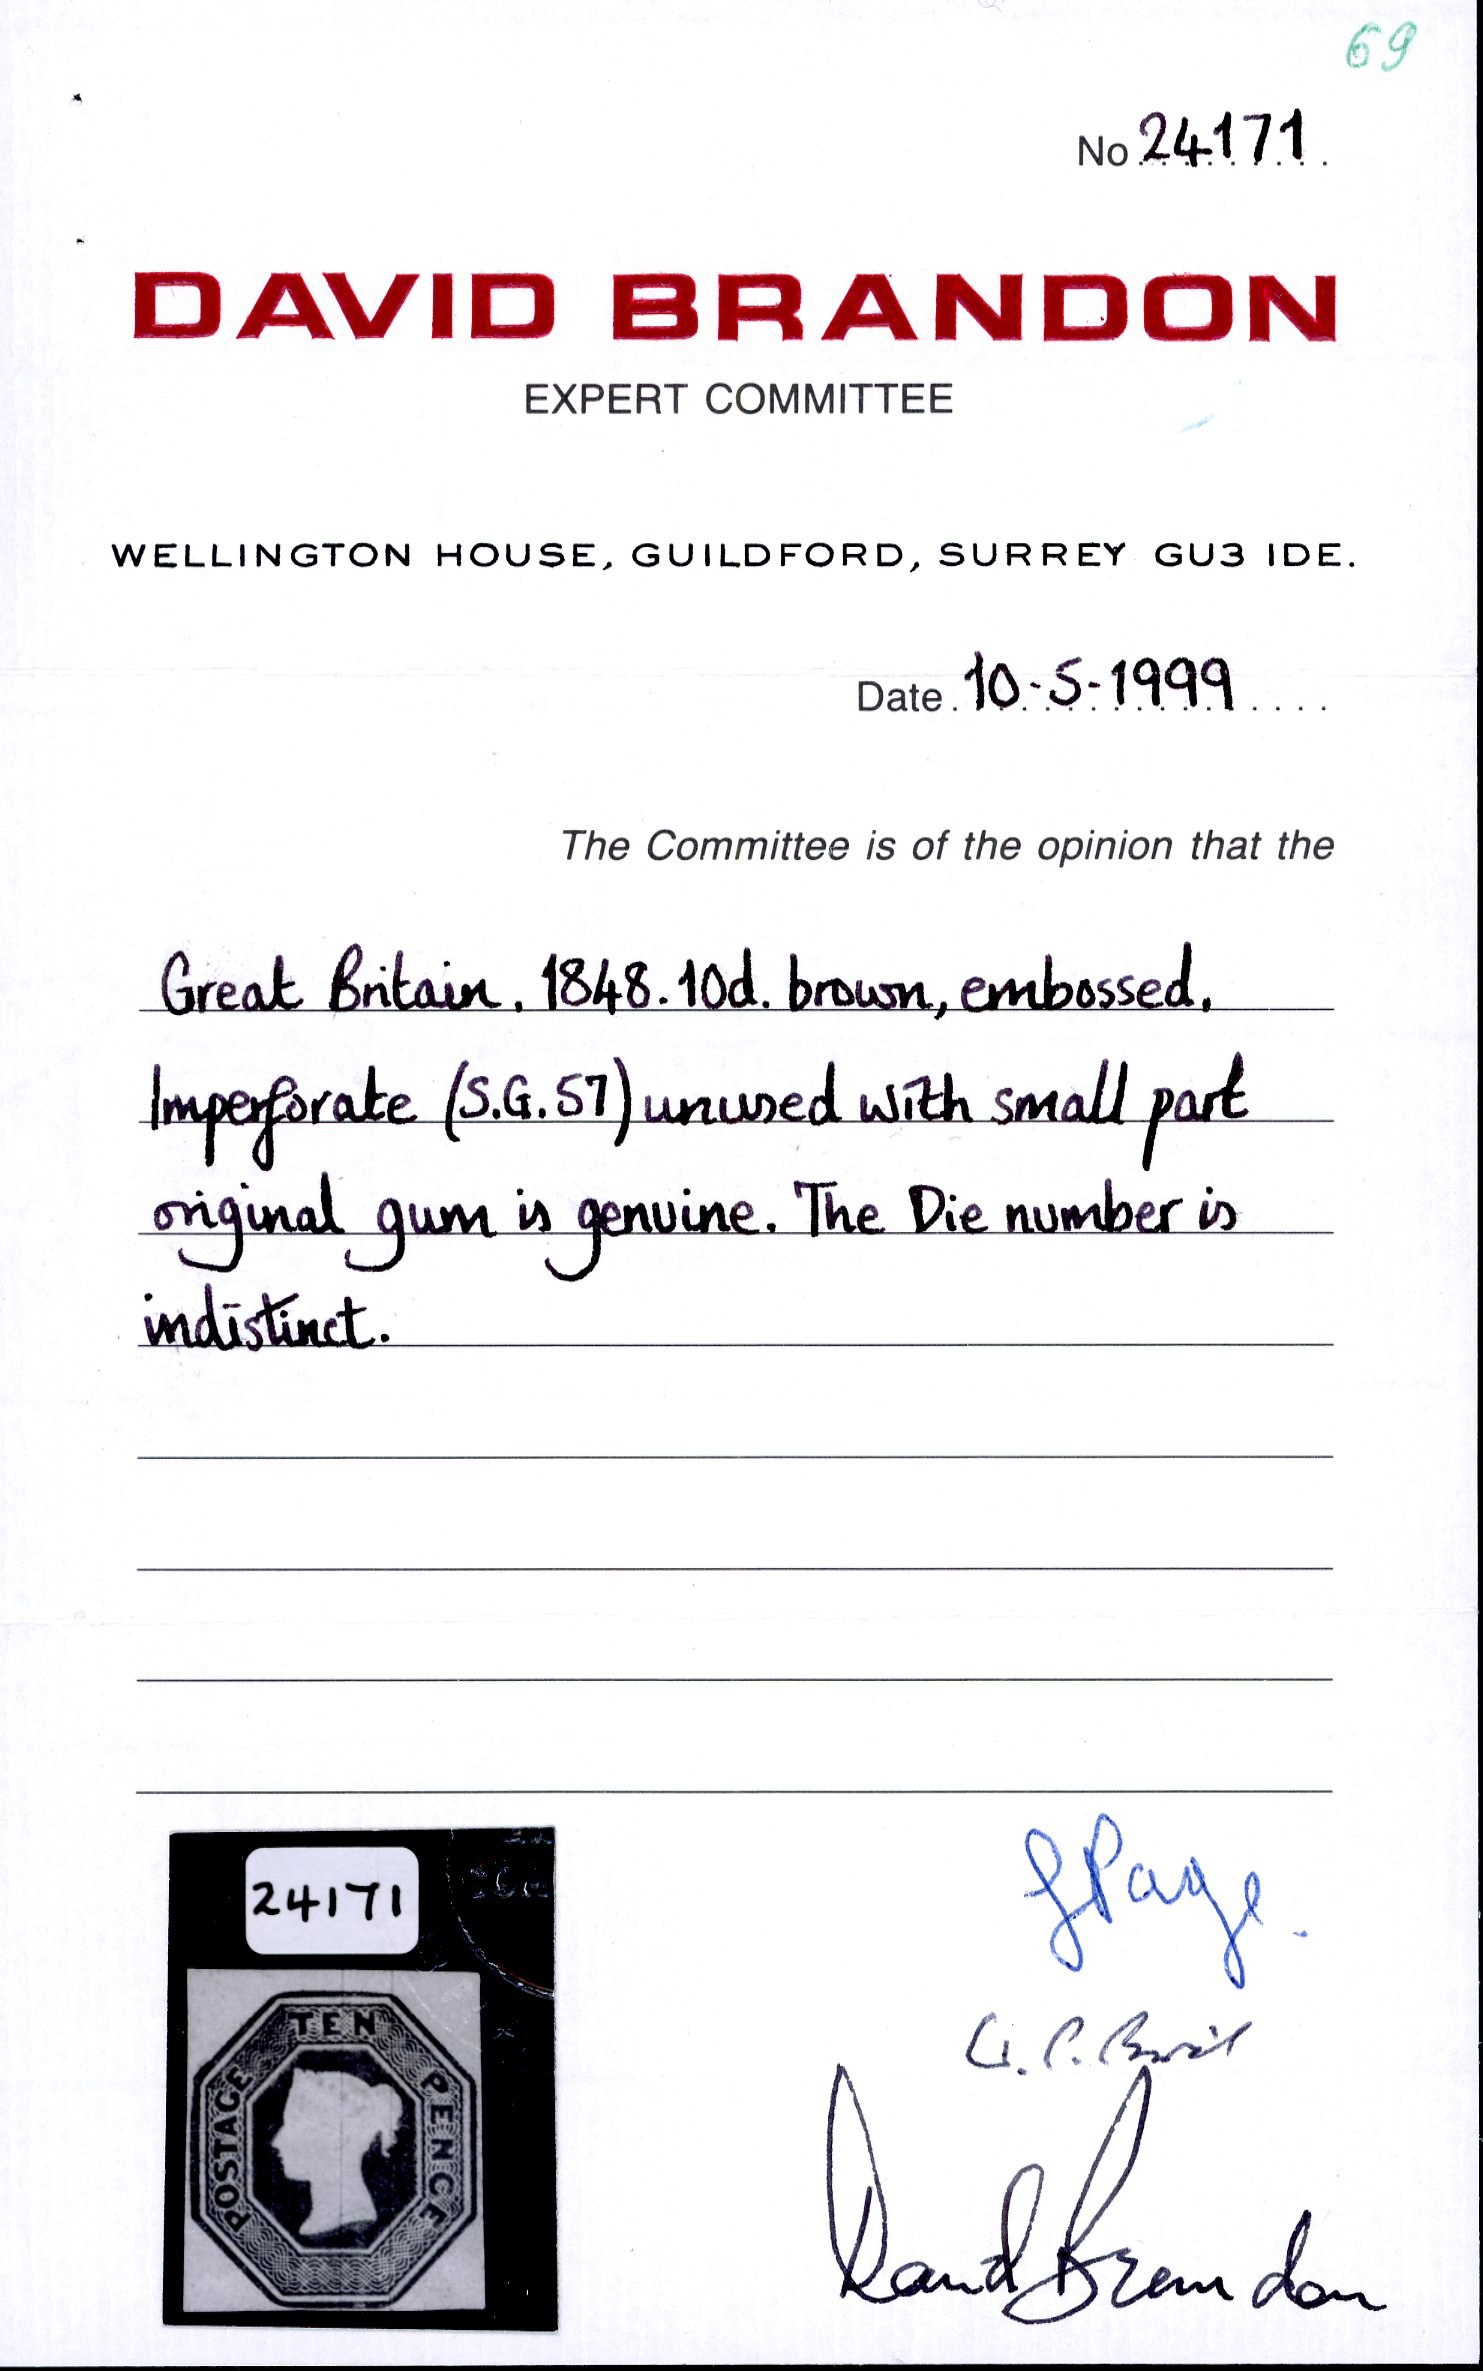 69
No 24171
DAVID BRANDON
EXPERT COMMITTEE
WELLINGTON HOUSE, GUILDFORD, SURREY GU3 IDE.
Date 10-5-1999
The Committee is of the opinion that the
Great Britain. 1848. 10d. brown, embossed,
Imperforate (S.G. 57) unused with small part
original gum is genuine. The Die number is
indistinct.
24171
TEN
POSTAGE
PENCE
Page.
David Brandon